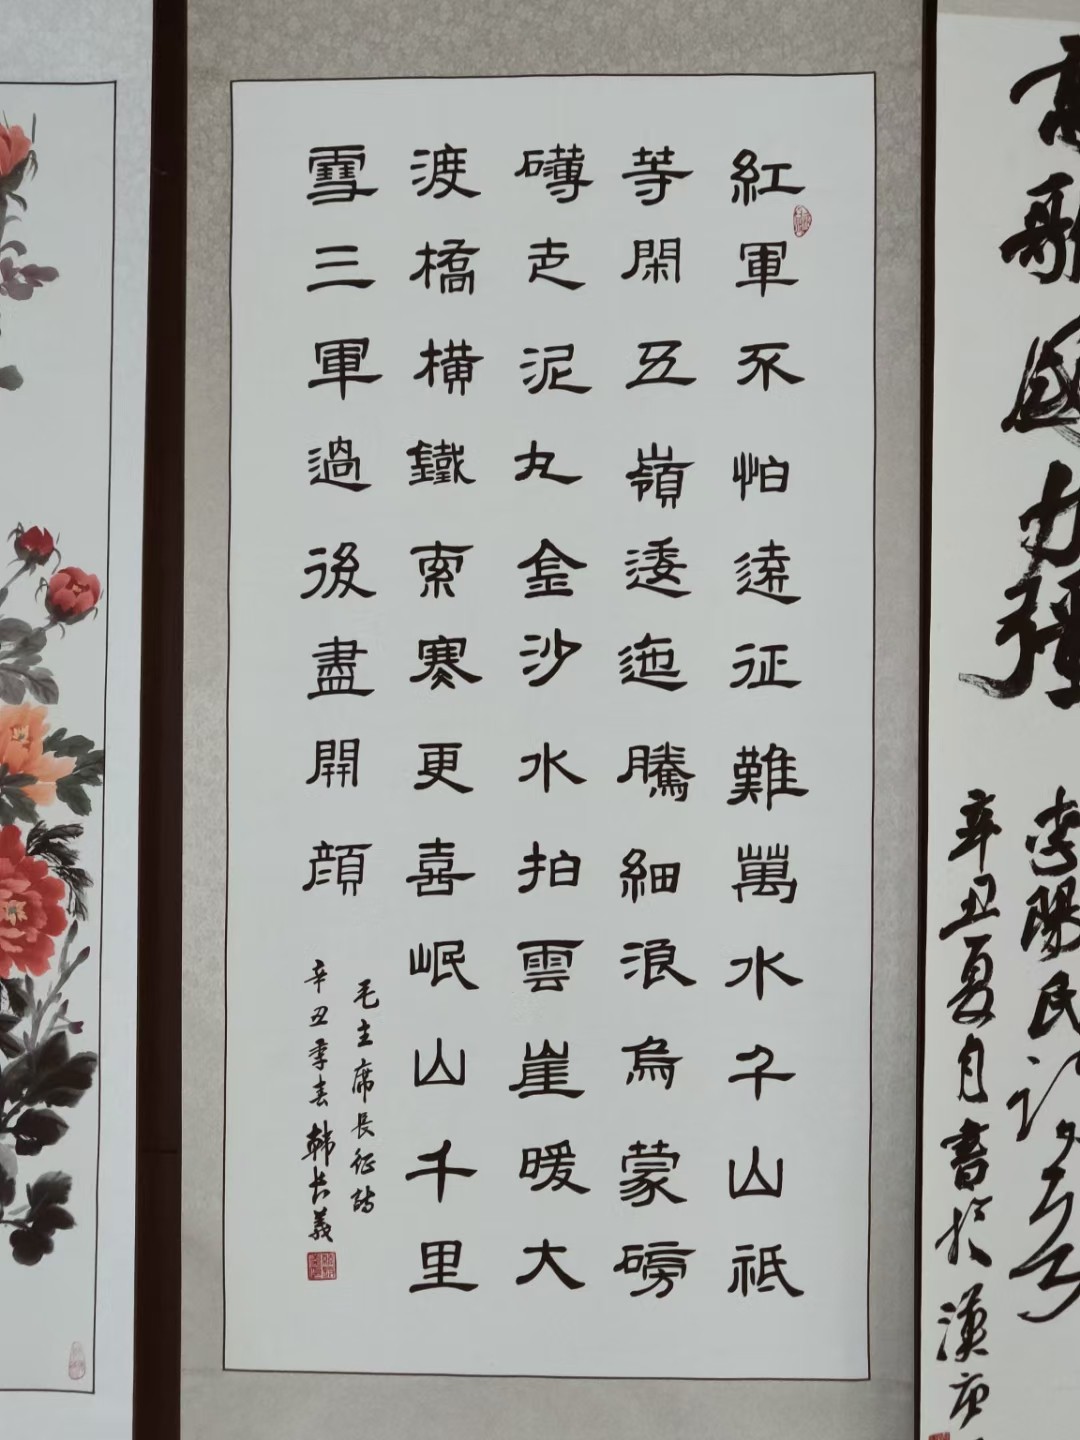 高歌國力強
辛丑夏月書於漢
紅軍不怕遠征難萬水千山祗
等閑五嶺逶迤騰細浪烏蒙磅
礴走泥丸金沙水拍雲崖暖大
渡橋橫鐵索寒更喜岷山千里
雪三軍過後盡開顏
毛主席長征詩
辛丑季春韩长義